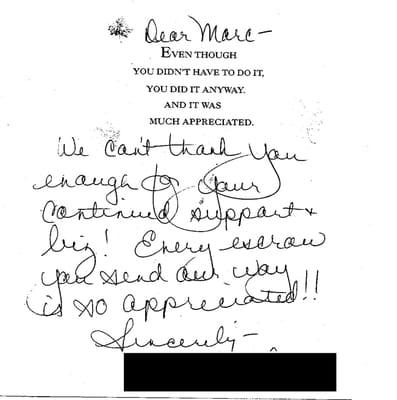 Dear Marc-
EVEN THOUGH
YOU DIDN'T HAVE TO DO IT,
YOU DID IT ANYWAY.
AND IT WAS
MUCH APPRECIATED.
We can't thank you
enough for your
continued support &
biz! Every escrow
you send our way
is so appreciated!!
Sincerely-